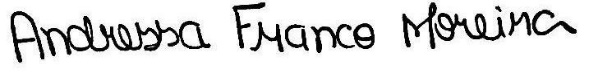 Andressa Franco Moreira